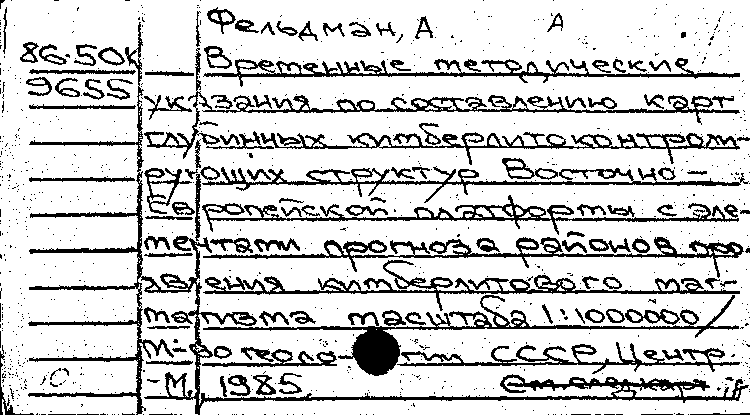 Фельдман, А А
86-50к Временные методические
9655 указания по составлению карт
глубинных кимберлитоконтроли-
рующих структур Восточно-
Европейской платформы с эле-
ментами прогноза районов про-
явления кимберлитового маг-
матизма масштаба 1:1000000/
М-во геоло- гии СССР, Центр.
-М., 1985.